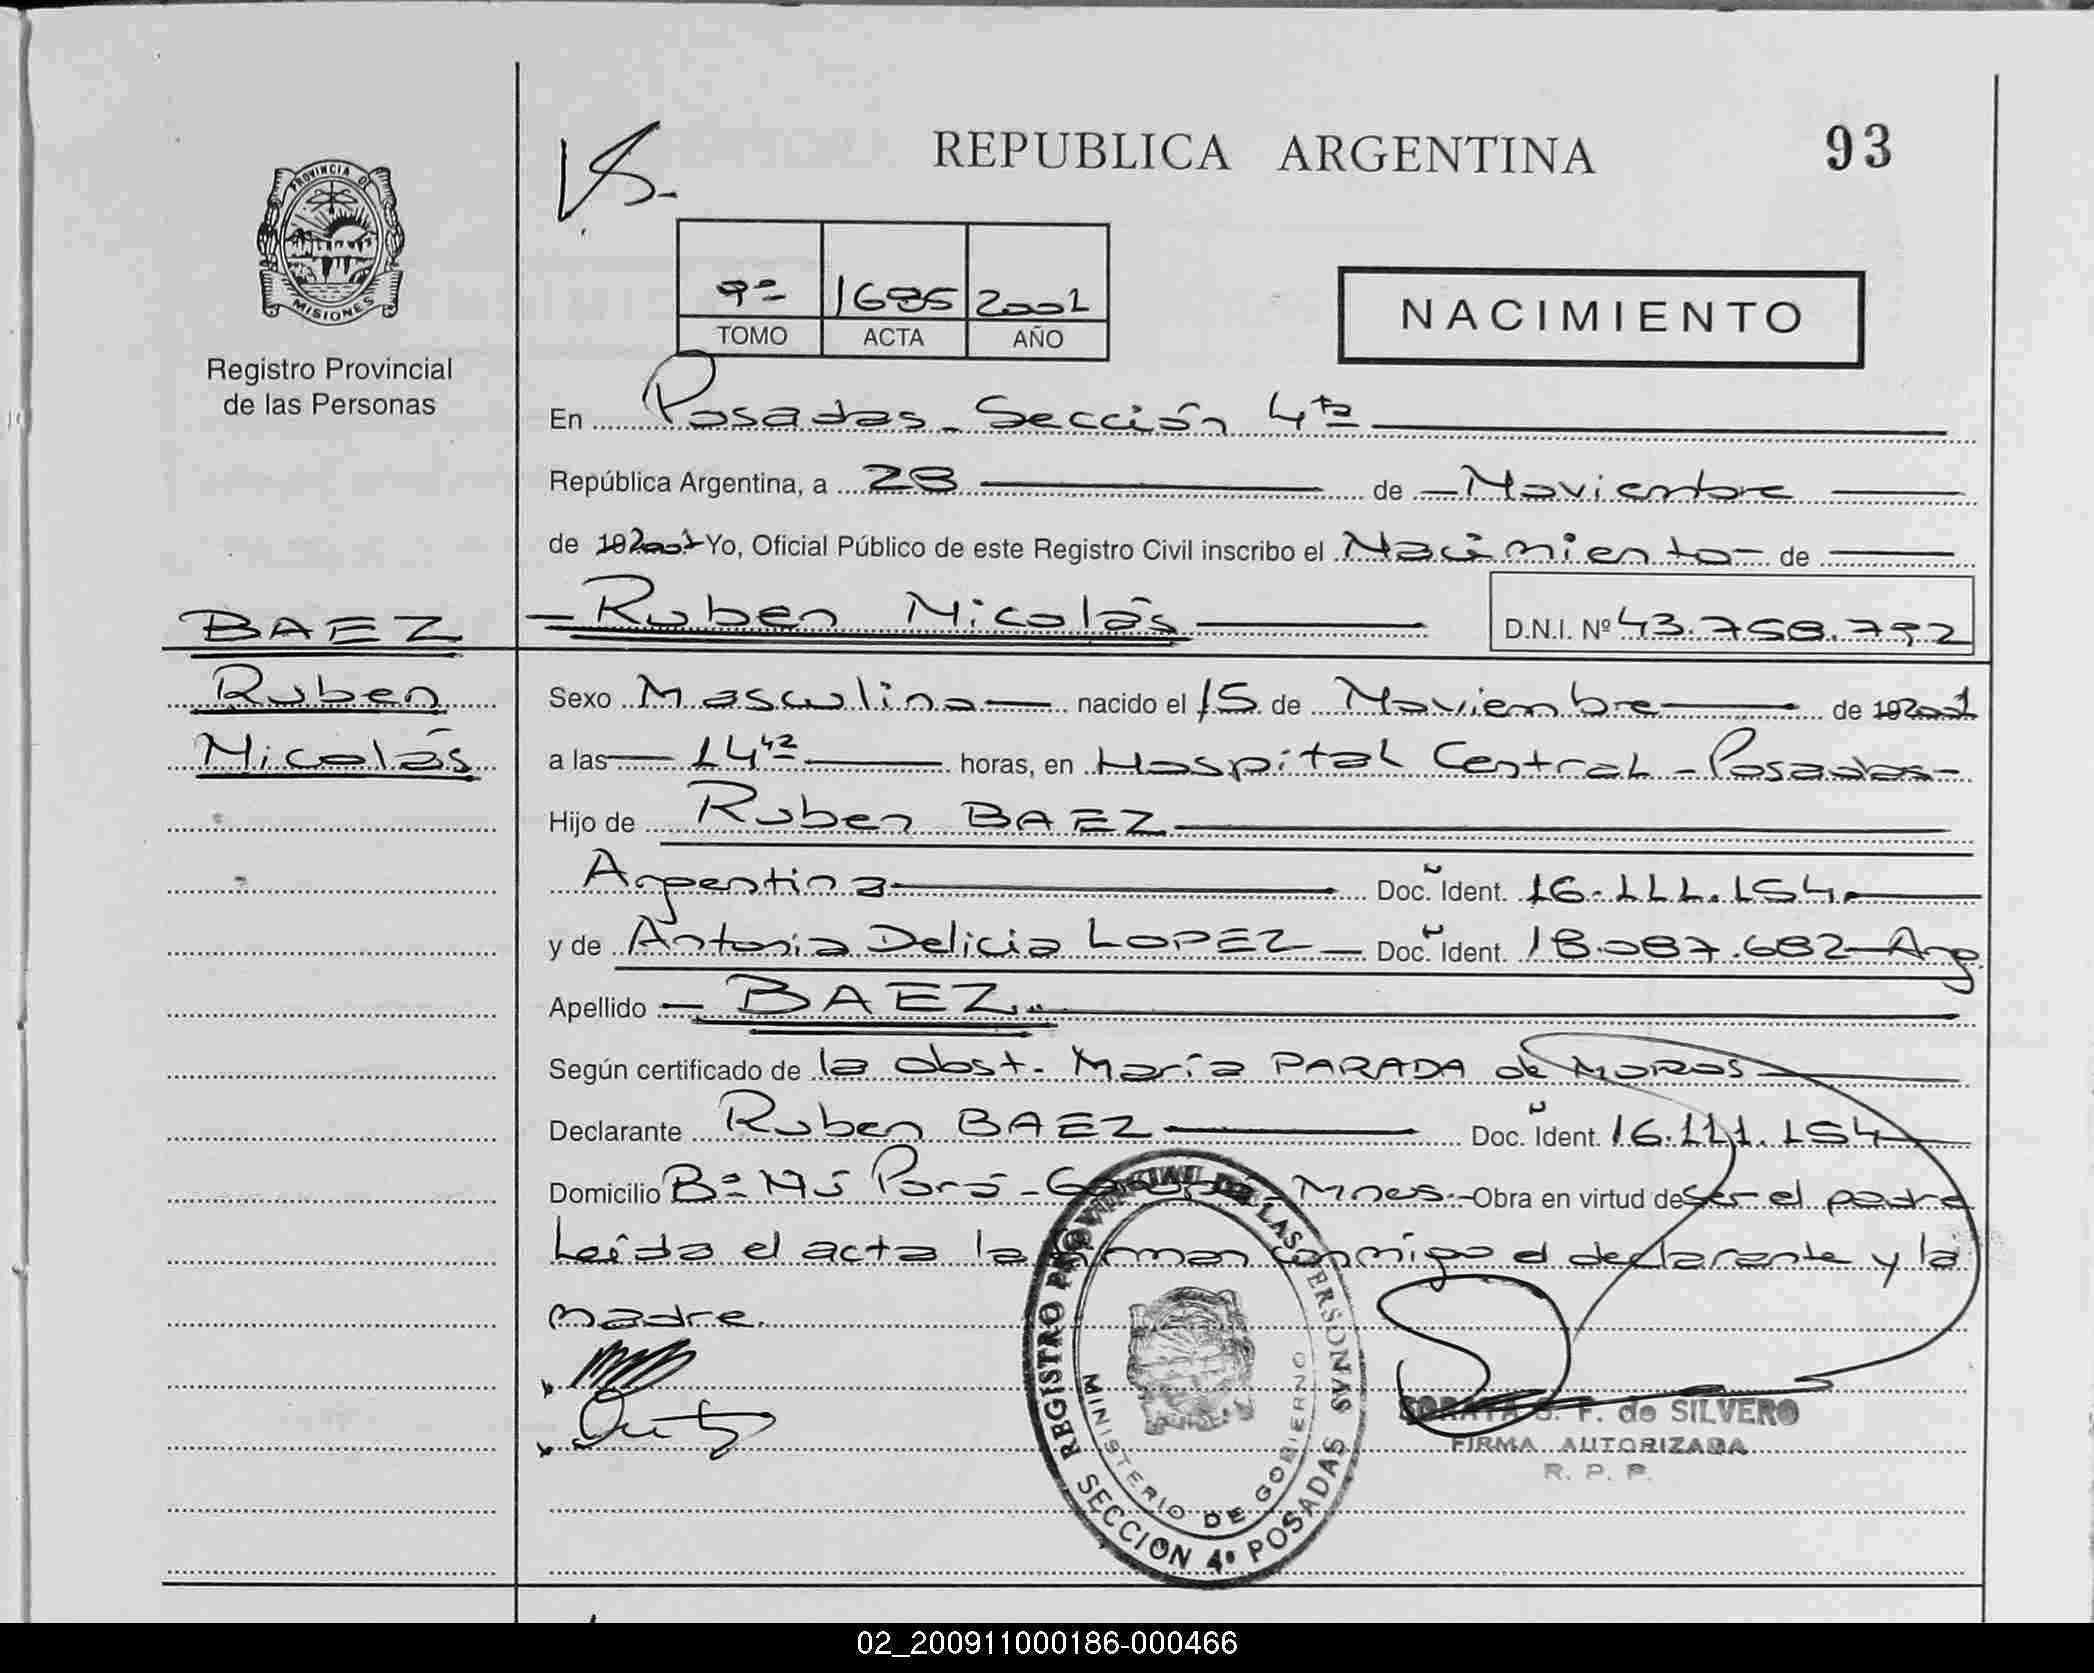 REPUBLICA ARGENTINA
93
PROVINCIA DE
MISIONES
Registro Provincial
de las Personas
9º 1685 2001
TOMO ACTA AÑO
NACIMIENTO
En Posadas - Sección 4ta
República Argentina, a 28 de Noviembre
de 192001 Yo, Oficial Público de este Registro Civil inscribo el Nacimiento de
BAEZ
Ruben
Nicolás
Ruben Nicolás D.N.I. Nº 43.758.792
Sexo Masculino nacido el 15 de Noviembre de 192001
a las 14 42 horas, en Hospital Central - Posadas-
Hijo de Ruben BAEZ
Argentina Doc. Ident. 16.111.154.
y de Antonia Delicia LOPEZ Doc. Ident. 18.087.682 - Arg.
Apellido BAEZ
Según certificado de la obst. María PARADA de MOROS
Declarante Ruben BAEZ Doc. Ident. 16.111.154
Domicilio Bº Ñú Porá - Mnes. - Obra en virtud de ser el padre
Leída el acta la firman conmigo el declarante y la
madre.
REGISTRO PROVINCIAL DE LAS PERSONAS
MINISTERIO DE GOBIERNO
SECCION 4ª POSADAS
SORAYA S. F. de SILVERO
FIRMA AUTORIZADA
R. P. P.
02_200911000186-000466